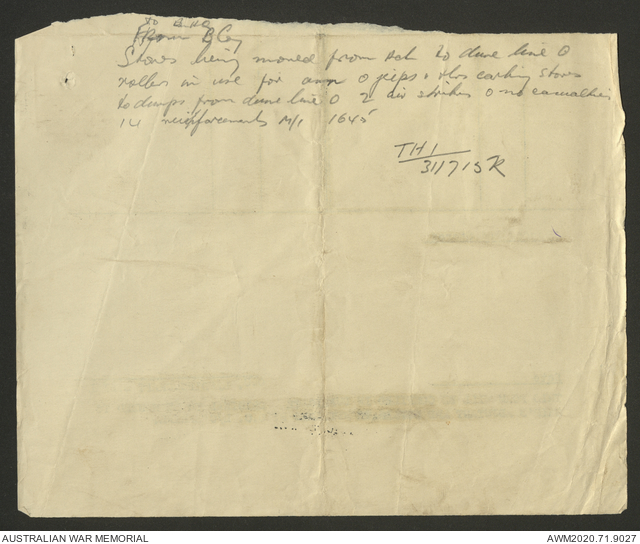 to B.HQ
From B Coy
Stores being moved from bch to dune line O
rollers in use for amn O jeps + tlrs carting stores
to dumps from dune line O 2 air strikes O no casualties
reinforcements M/I 1645
TH1
311715K
AUSTRALIAN WAR MEMORIAL
AWM2020.71.9027